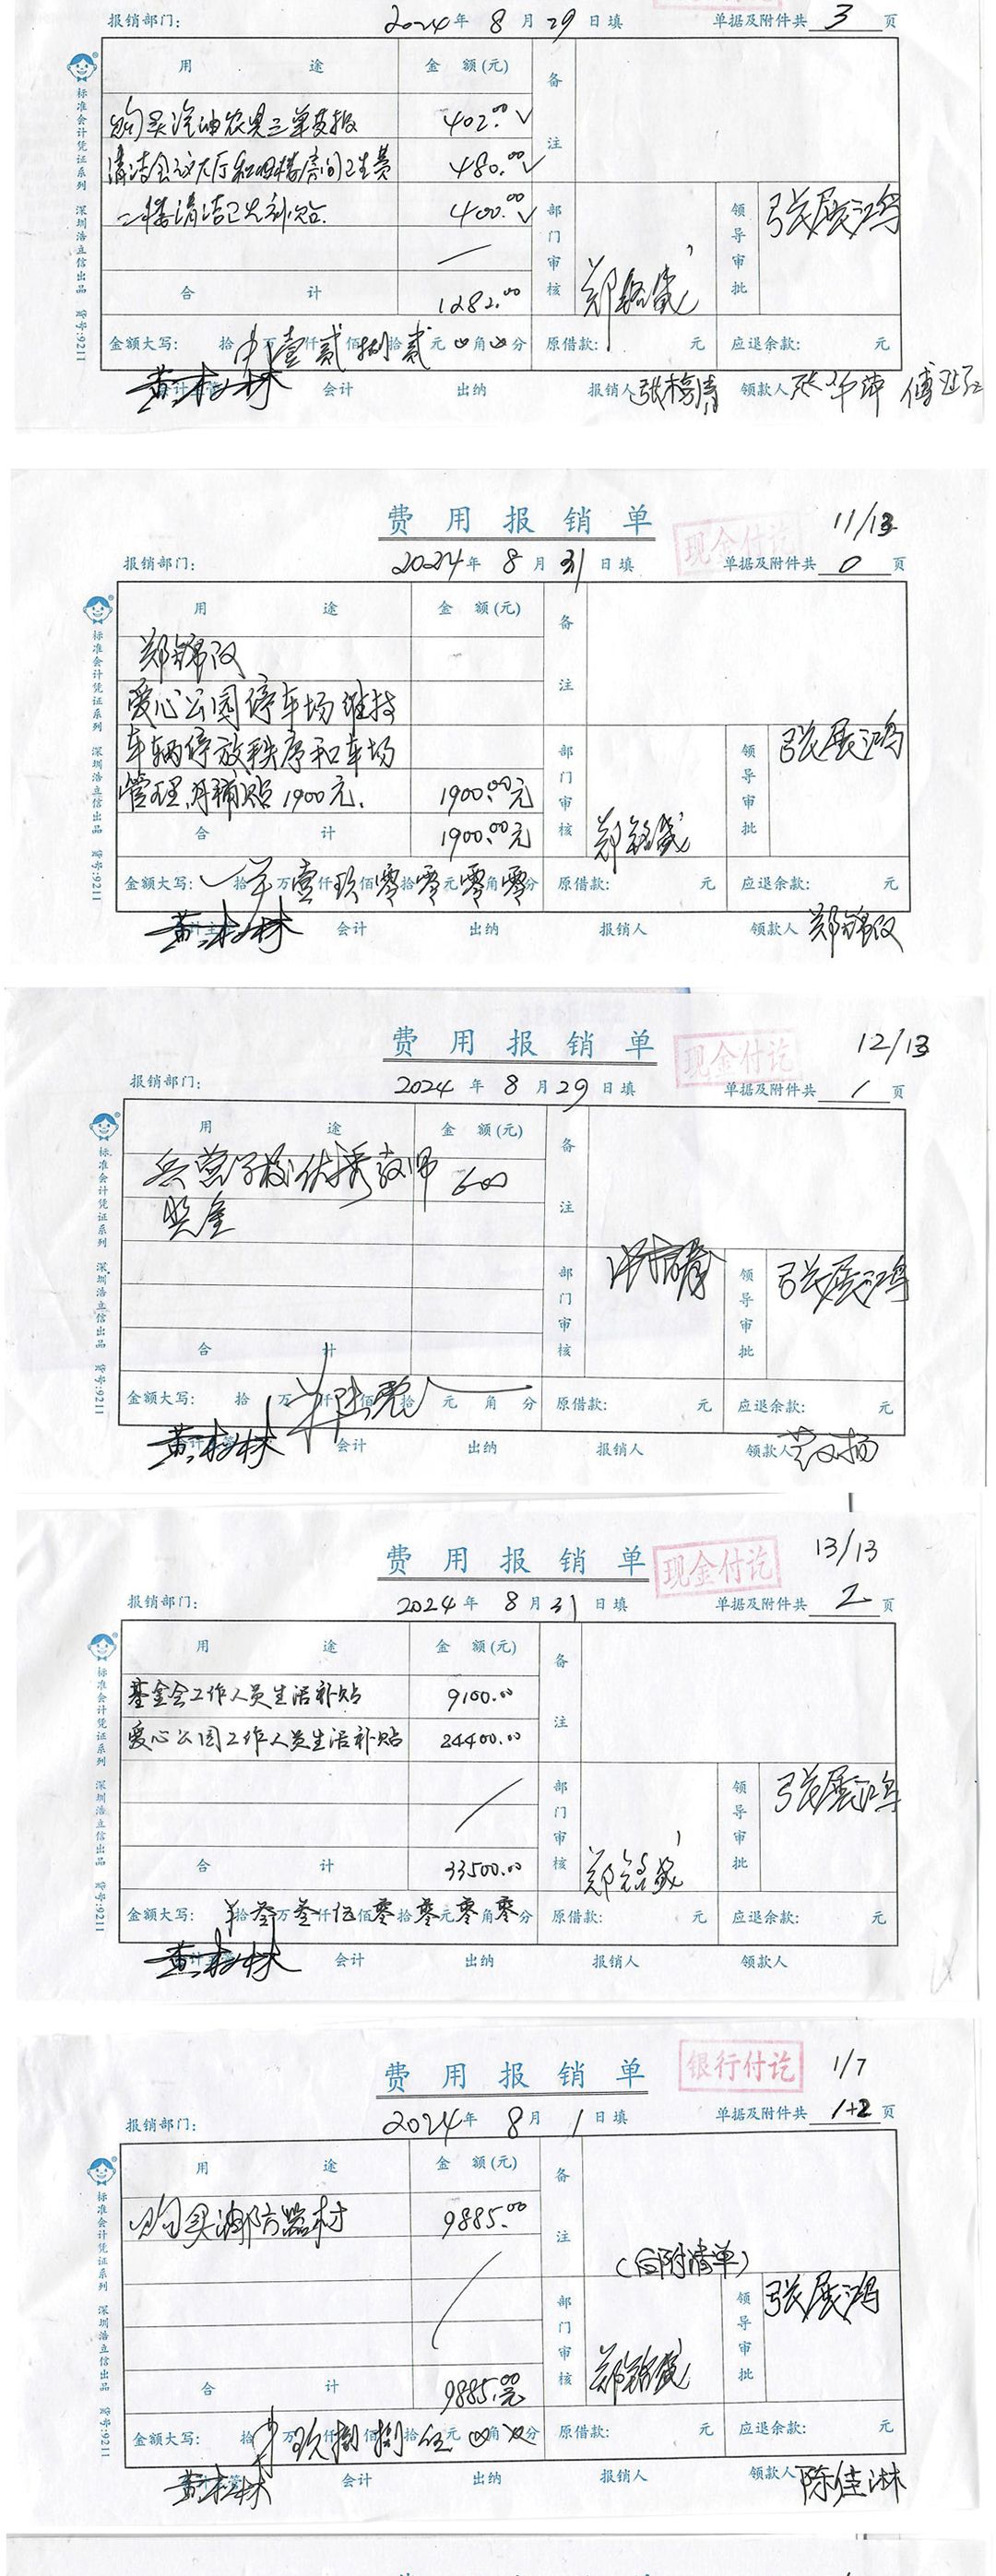 报销部门: 2024年 8 月 29 日填 单据及附件共 3 页
用 途 金 额(元) 备注
购买汽油农具三单支报 402.00
清洁会议大厅和四楼房间卫生费 480.00
二楼清洁卫生补贴 400.00
部门审核 领导审批 张展鸿
合 计 1282.00
金额大写: 拾 万 壹仟 贰佰 捌拾 贰元 角 分 原借款: 元 应退余款: 元
黄 林 会计 出纳 报销人 领款人
标准会计凭证系列 深圳浩立信出品 货号:9211
费用报销单 现金付讫 11/13
报销部门: 2024年 8 月 31 日填 单据及附件共 0 页
用 途 金 额(元) 备注
郑锦汉
爱心公园停车场维持
车辆停放秩序和车场
管理,月補贴1900元. 1900.00元
部门审核 领导审批 张展鸿
合 计 1900.00元
金额大写: 拾 万 壹仟 玖佰 零拾 零元 零角 零分 原借款: 元 应退余款: 元
黄 林 会计 出纳 报销人 领款人 郑锦汉
标准会计凭证系列 深圳浩立信出品 货号:9211
费用报销单 现金付讫 12/13
报销部门: 2024年 8 月 29 日填 单据及附件共 1 页
用 途 金 额(元) 备注
兵营学校优秀教师 600
奖金
部门审核 领导审批 张展鸿
合 计
金额大写: 拾 万 仟 陆佰 拾 元 角 分 原借款: 元 应退余款: 元
黄 林 会计 出纳 报销人 领款人
标准会计凭证系列 深圳浩立信出品 货号:9211
费用报销单 现金付讫 13/13
报销部门: 2024年 8 月 31 日填 单据及附件共 2 页
用 途 金 额(元) 备注
基金会工作人员生活补贴 9100.00
爱心公园工作人员生活补贴 24400.00
部门审核 领导审批 张展鸿
合 计 33500.00
金额大写: 拾 叁万 叁仟 伍佰 零拾 零元 零角 零分 原借款: 元 应退余款: 元
黄 林 会计 出纳 报销人 领款人
标准会计凭证系列 深圳浩立信出品 货号:9211
费用报销单 银行付讫 1/7
报销部门: 2024年 8 月 1 日填 单据及附件共 1+2 页
用 途 金 额(元) 备注
购买消防器材 9885.00
(后附清单)
部门审核 领导审批 张展鸿
合 计 9885.00元
金额大写: 拾 万 玖仟 捌佰 捌拾 伍元 角 分 原借款: 元 应退余款: 元
黄 林 会计 出纳 报销人 领款人 陈佳淋
标准会计凭证系列 深圳浩立信出品 货号:9211